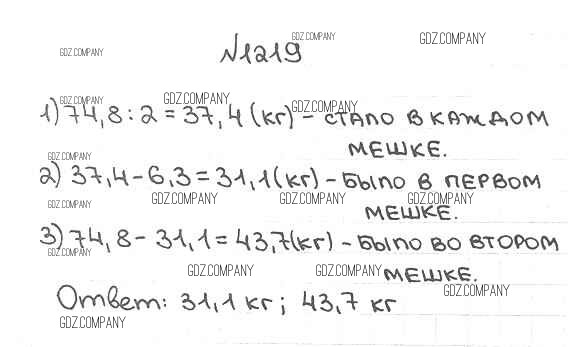 GDZ.COMPANY GDZ.COMPANY GDZ.COMPANY
№1219
GDZ.COMPANY GDZ.COMPANY GDZ.COMPANY
1) 74,8 : 2 = 37,4 (кг) - СТАЛО В КАЖДОМ
МЕШКЕ.
GDZ.COMPANY
2) 37,4 - 6,3 = 31,1 (кг) - БЫЛО В ПЕРВОМ
GDZ.COMPANY GDZ.COMPANY GDZ.COMPANY GDZ.COMPANY
МЕШКЕ.
3) 74,8 - 31,1 = 43,7 (кг) - БЫЛО ВО ВТОРОМ
GDZ.COMPANY
GDZ.COMPANY GDZ.COMPANY МЕШКЕ.
GDZ.COMPANY
Ответ: 31,1 кг; 43,7 кг
GDZ.COMPANY